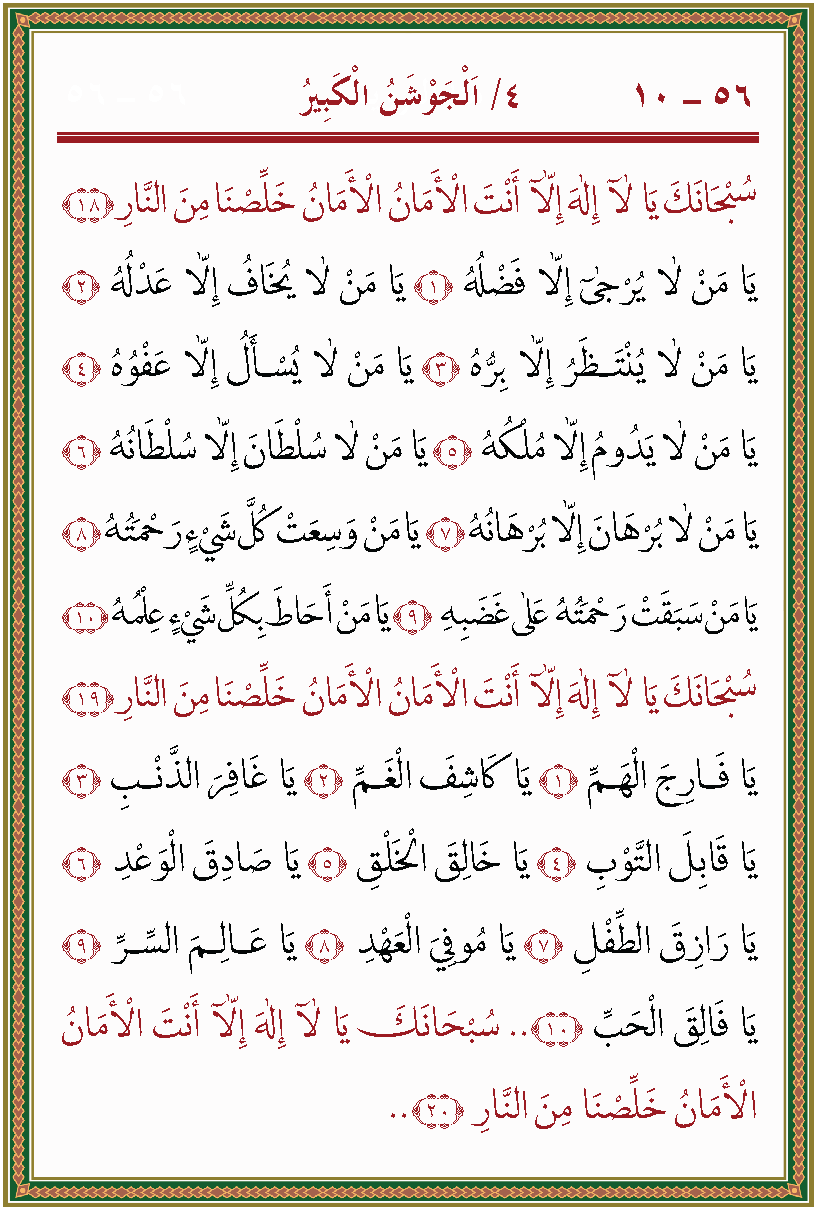 ٥٦ – ١٠ ٤/ اَلْجَوْشَنُ الْكَبِيرُ
سُبْحَانَكَ يَا لٰٓا إِلٰهَ إِلَّٓا أَنْتَ الْأَمَانُ الْأَمَانُ خَلِّصْنَا مِنَ النَّارِ ﴿١٨﴾
يَا مَنْ لٰا يُرْجٰىٓ إِلَّا فَضْلُهُ ﴿١﴾ يَا مَنْ لٰا يُخَافُ إِلَّا عَدْلُهُ ﴿٢﴾
يَا مَنْ لٰا يُنْتَــظَرُ إِلَّا بِرُّهُ ﴿٣﴾ يَا مَنْ لٰا يُسْـأَلُ إِلَّا عَفْوُهُ ﴿٤﴾
يَا مَنْ لٰا يَدُومُ إِلَّا مُلْكُهُ ﴿٥﴾ يَا مَنْ لٰا سُلْطَانَ إِلَّا سُلْطَانُهُ ﴿٦﴾
يَا مَنْ لٰا بُرْهَانَ إِلَّا بُرْهَانُهُ ﴿٧﴾ يَا مَنْ وَسِعَتْ كُلَّ شَيْءٍ رَحْمَتُهُ ﴿٨﴾
يَا مَنْ سَبَقَتْ رَحْمَتُهُ عَلٰى غَضَبِهِ ﴿٩﴾ يَا مَنْ أَحَاطَ بِكُلِّ شَيْءٍ عِلْمُهُ ﴿١٠﴾
سُبْحَانَكَ يَا لٰٓا إِلٰهَ إِلَّٓا أَنْتَ الْأَمَانُ الْأَمَانُ خَلِّصْنَا مِنَ النَّارِ ﴿١٩﴾
يَا فَــارِجَ الْهَــمِّ ﴿١﴾ يَا كَاشِفَ الْغَــمِّ ﴿٢﴾ يَا غَافِرَ الذَّنْــبِ ﴿٣﴾
يَا قَابِلَ التَّوْبِ ﴿٤﴾ يَا خَالِقَ الْخَلْقِ ﴿٥﴾ يَا صَادِقَ الْوَعْدِ ﴿٦﴾
يَا رَازِقَ الطِّفْلِ ﴿٧﴾ يَا مُوفِيَ الْعَهْدِ ﴿٨﴾ يَا عَــالِــمَ السِّــرِّ ﴿٩﴾
يَا فَالِقَ الْحَبِّ ﴿١٠﴾.. سُبْحَانَكَ يَا لٰٓا إِلٰهَ إِلَّٓا أَنْتَ الْأَمَانُ
الْأَمَانُ خَلِّصْنَا مِنَ النَّارِ ﴿٢٠﴾..